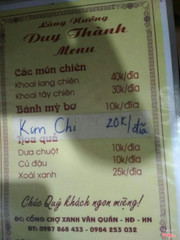 Làng Nướng
Duy Thành
Menu
Các món chiên
Khoai lang chiên 40k/đĩa
Khoai tây chiên 30k/đĩa
Bánh mỳ bơ 10k/đĩa
Kim Chi 20K/đĩa
Hoa quả
Dưa chuột 10k/đĩa
Củ đậu 10k/đĩa
Xoài xanh 25k/đĩa
Chúc Quý khách ngon miệng!
ĐC: CỔNG CHỢ XANH VĂN QUÁN - HĐ - HN
ĐT: 0987 868 433 - 0984 253 032